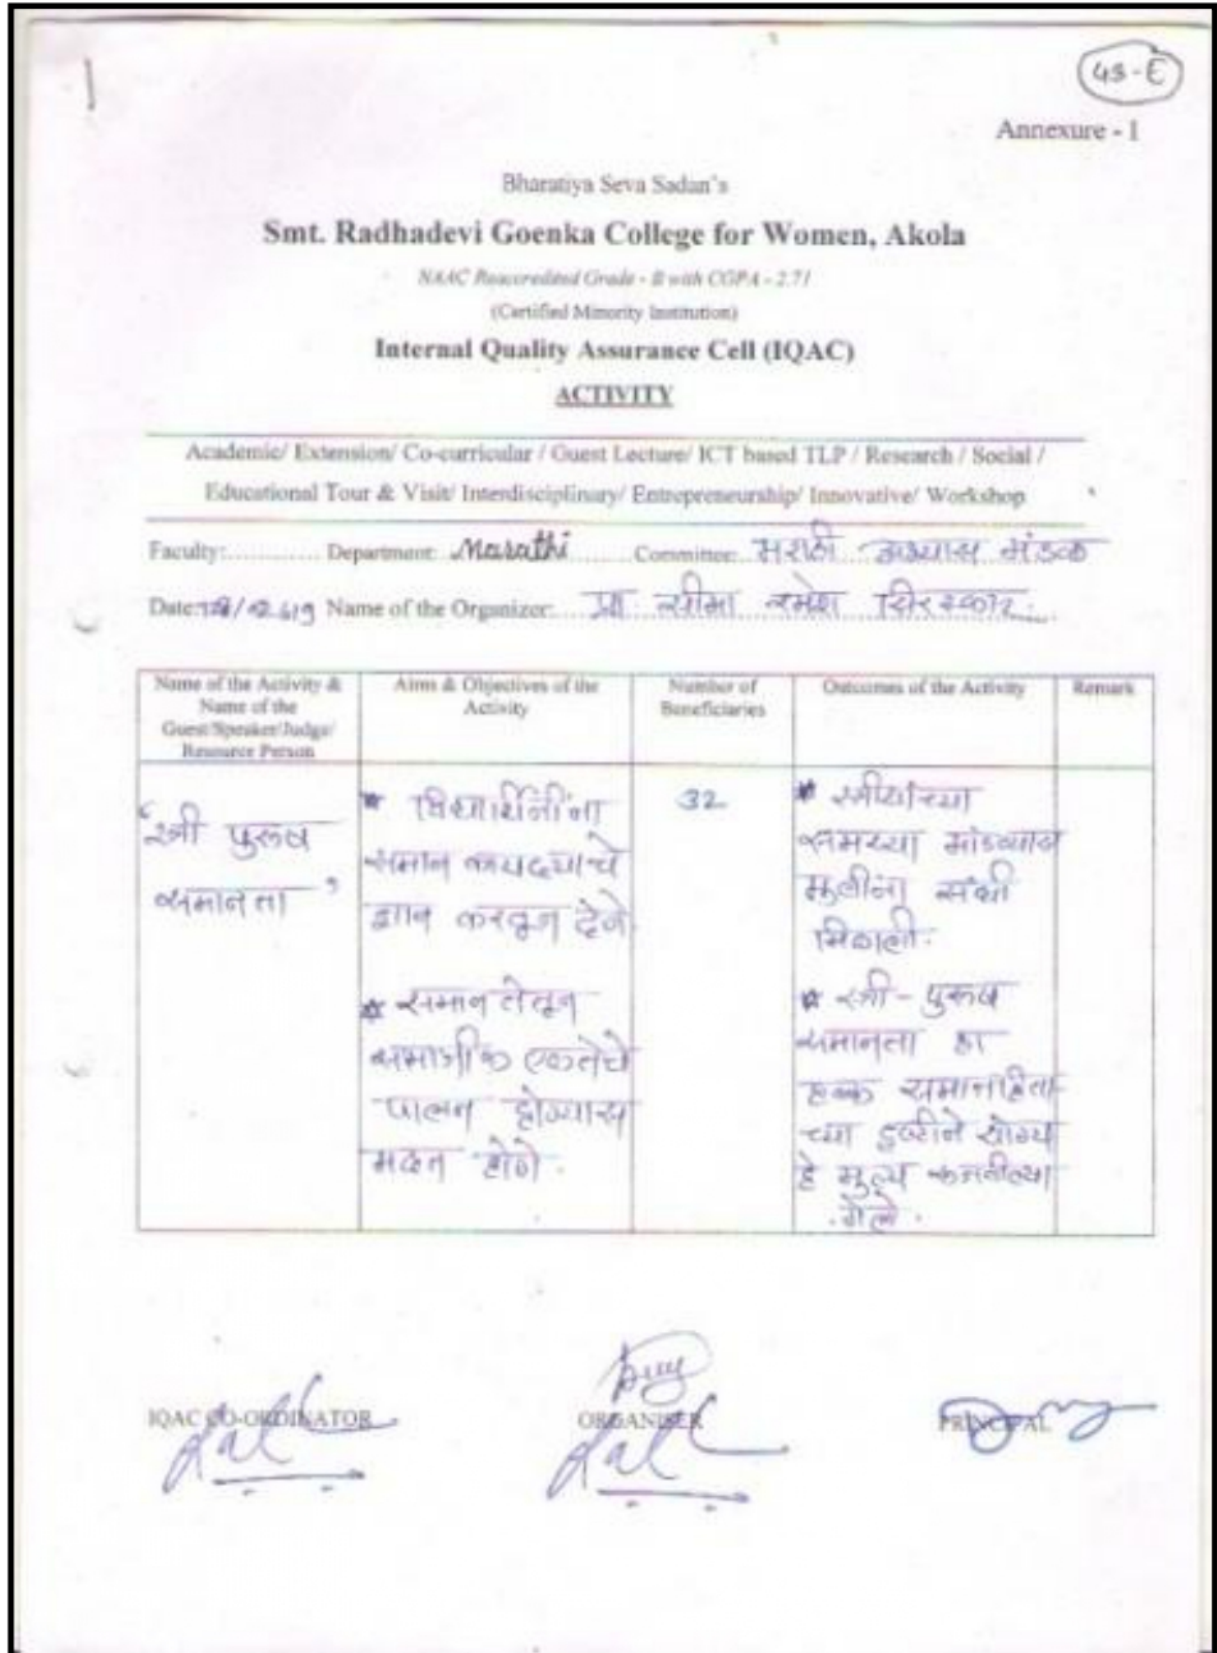 43-E
Annexure - 1
Bharatiya Seva Sadan's
Smt. Radhadevi Goenka College for Women, Akola
NAAC Reaccredited Grade - B with CGPA - 2.71
(Certified Minority Institution)
Internal Quality Assurance Cell (IQAC)
ACTIVITY
Academic/ Extension/ Co-curricular / Guest Lecture/ ICT based TLP / Research / Social /
Educational Tour & Visit/ Interdisciplinary/ Entrepreneurship/ Innovative/ Workshop
Faculty:............ Department: Marathi Committee: मराठी अभ्यास मंडळ
Date: Name of the Organizer: प्रा. सीमा रमेश
Name of the Activity &
Name of the
Guest/Speaker/Judge/
Resource Person
Aims & Objectives of the
Activity
Number of
Beneficiaries
Outcomes of the Activity
Remark
'स्त्री पुरुष
समानता'
* विद्यार्थिनींना
समान कायद्याचे
ज्ञान करवून देणे
* समानतेतून
एकतेचे
पालन होण्यास
मदत होणे.
32
* स्त्रीयांच्या
समस्या मांडण्याव
मुलींना संधी
मिळाली.
* स्त्री - पुरुष
समानता हा
हक्क
च्या दृष्टीने योग्य
हे मुल्य
गेले.
IQAC CO-ORDINATOR
ORGANISER
PRINCIPAL